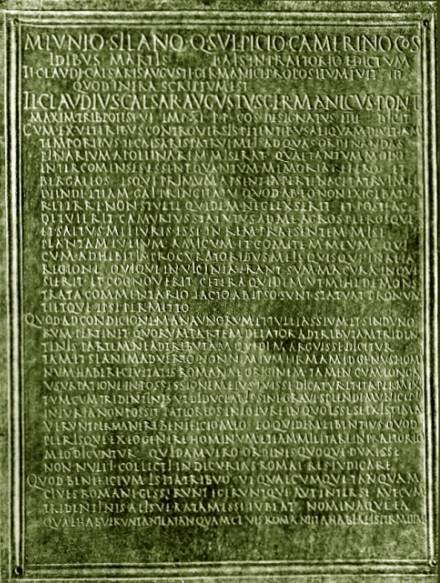 M IVNIO SILANO Q SVLPICIO CAMERINO COS
IDIBVS MARTIS BAIS IN PRAETORIO EDICTVM
TI CLAVDI CAESARIS AVGVSTI GERMANICI PROPOSITVM FVIT ID
QVOD INFRA SCRIPTVM EST
TI CLAVDIVS CAESAR AVGVSTVS GERMANICVS PONT
MAXIM TRIB POTEST VI IMP XI P P COS DESIGNATVS IIII DICIT
CVM EX VETERIBVS CONTROVERSIS PETENTIBVS ALIQVAMDIV ETIAM
TEMPORIBVS TI CAESARIS PATRVI MEI AD QVAS ORDINANDAS
PINARIVM APOLLINAREM MISERAT QVAE TANTVM MODO
INTER COMENSES ESSENT QVANTVM MEMORIA REFERO ET
BERGALEOS ISQVE PRIMVM APSENTIA PERTINACI PATRVI MEI
DEINDE ETIAM GAI PRINCIPATV QVOD AB EO NON EXIGEBATVR
REFERRE NON STVLTE QVIDEM NEGLEXSERIT ET POSTEAC
DETVLERIT CAMVRIVS STATVTVS AD ME AGROS PLEROSQVE
ET SALTVS MEI IVRIS ESSE IN REM PRAESENTEM MISI
PLANTAM IVLIVM AMICVM ET COMITEM MEVM QVI
CVM ADHIBITIS PROCVRATORIBVS MEIS QVISQVE IN ALIA
REGIONE QVIQVE IN VICINIA ERANT SVMMA CVRA INQVI
SIERIT ET COGNOVERIT CETERA QVIDEM VT MIHI DEMONS
TRATA COMMENTARIO FACTO AB IPSO SVNT STATVAT PRONVN
TIETQVE IPSI PERMITTO
QVOD AD CONDICIONEM ANAVNORVM ET TVLLIASSIVM ET SINDVNO
RVM PERTINET QVORVM PARTEM DELATOR ADTRIBVTAM TRIDEN
TINIS PARTEM NE ADTRIBVTAM QVIDEM ARGVISSE DICITVR
TAM ET SI ANIMADVERTO NON NIMIVM FIRMAM ID GENVS HOMI
NVM HABERE CIVITATIS ROMANAE ORIGINEM TAMEN CVM LONGA
VSVRPATIONE IN POSSESSIONEM EIVS FVISSE DICATVR ET ITA PERMIX
TVM CVM TRIDENTINIS VT DIDVCI AB IS SINE GRAVI SPLENDIDI MVNICIPI
INIVRIA NON POSSIT PATIOR EOS IN EO IVRE IN QVO ESSE SE EXISTIMA
VERVNT PERMANERE BENEFICIO MEO EO QVIDEM LIBENTIVS QVOD
PLERISQVE EX EO GENERE HOMINVM ETIAM MILITARE IN PRAETORIO
MEO DICVNTVR QVIDAM VERO ORDINES QVOQVE DVXISSE
NON NVLLI COLLECTI IN DECVRIAS ROMAE RES IVDICARE
QVOD BENEFICIVM IS ITA TRIBVO VT QVAECVMQVE TANQVAM
CIVES ROMANI GESSERVNT EGERVNTQVE AVT INTER SE AVT CVM
TRIDENTINIS ALISVE RATA ESSE IVBEAT NOMINAQVE EA
QVAE HABVERVNT ANTEA TANQVAM CIVES ROMANI ITA HABERE IS PERMITTAM